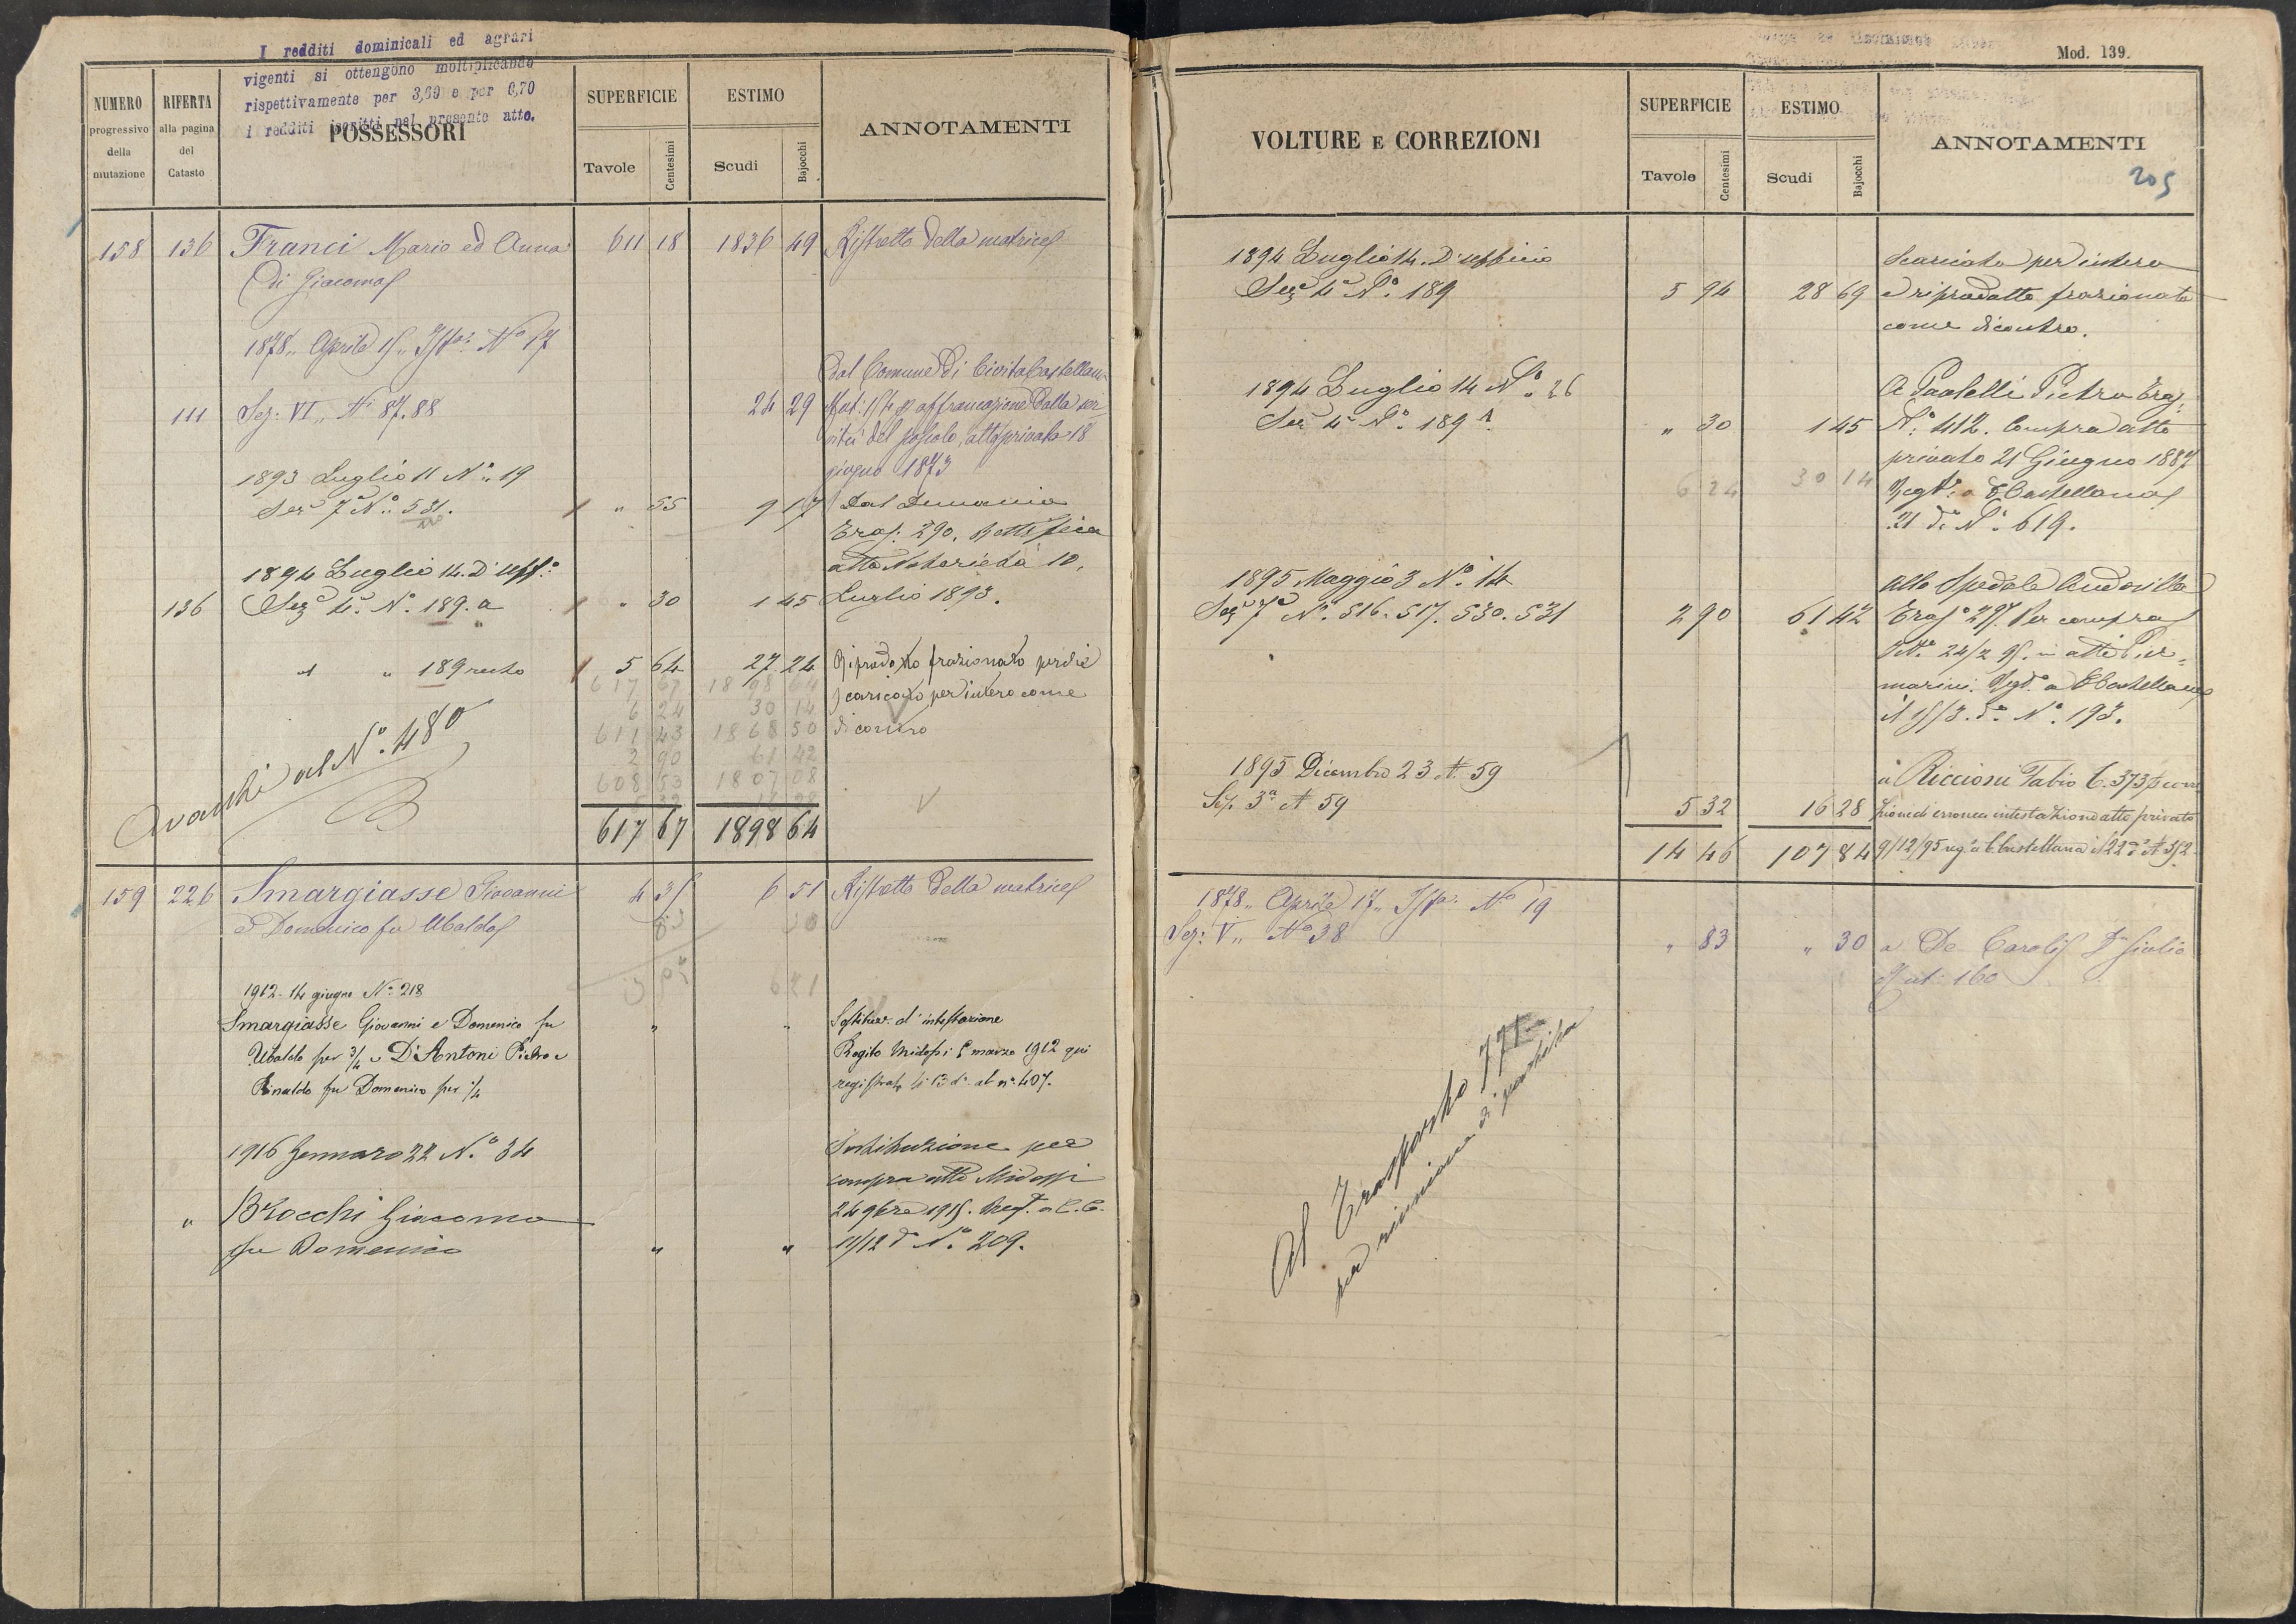 I redditi dominicali ed agrari
vigenti si ottengono moltiplicando
rispettivamente per 3,60 e per 6,70
i redditi iscritti nel presente atto.
NUMERO progressivo della mutazione
RIFERTA alla pagina del Catasto
POSSESSORI
SUPERFICIE
Tavole Centesimi
ESTIMO
Scudi Bajocchi
ANNOTAMENTI
158 136 Franci Mario ed Anna 611 18 1836 49 Ristretto della matrice
di Giacomo
1878 Aprile N° 17
dal Comune di Civita Castellana
111 Sez: VI N. 87.88 24 29 affrancazione dalla ser
vitù del pascolo, atto privato 18
giugno 1873
1893 Luglio 11 N° 19
Sez 7 N° 531. " 55 9 17 Dal Demanio
Tras: 290. Rettifica
atto Notorietà 10.
1894 Luglio 14. D'uff°
136 Sez 4ª N° 189.a " 30 1 45 Luglio 1893.
" " 189 resto 5 64 27 24 Riprodotto frazionato perchè
617 67 1898 64 scaricato per intero come
6 24 30 14
611 43 1868 50 dicontro
2 90 61 42
608 53 1807 08
Avanti al N° 480
617 67 1898 64
159 226 Smargiasse Giovanni 4 35 6 51 Ristretto della matrice
e Domenico fu Ubaldo
1912. 14 giugno N° 218
Smargiasse Giovanni e Domenico fu " " d'intestazione
Ubaldo per 3/4 e D'Antoni Pietro e Rogito Midossi marzo 1912 qui
Rinaldo fu Domenico per 1/4 registrato li 13 d° al n° 407.
1916 Gennaro 22 N° 34 Sostituzione per
compra atto Midossi
" Brocchi Giacomo 24 9bre 1915. Reg. a C.C.
fu Domenico " " 11/12 d° N° 209.
Mod. 139.
VOLTURE E CORREZIONI
SUPERFICIE
Tavole Centesimi
ESTIMO
Scudi Bajocchi
ANNOTAMENTI
205
1894 Luglio 14. D'ufficio Scaricato per intero
Sez 4ª N° 189 5 94 28 69 e riprodotto frazionato
come dicontro.
1894 Luglio 14 N° 26 A Paolelli Pietro Tras.
Sez 4ª N° 189 " 30 1 45 N° 412. Compra atto
privato 21 Giugno 1887
6 24 30 14 Regto a C Castellana
21 d° N° 619.
1895 Maggio 3 N° 14 Allo Spedale Andosilla
Sez 7ª N° 516. 517. 530. 531 2 90 61 42 Tras° 297. Per compra
24/2 95. in atti Pier
marini. Regto a C Castellana
il 15/3. d° N° 193.
1895 Dicembre 23 N 59 a Riccioni Fabio T. 373
Sez. 3ª N 59 5 32 16 28 zione di erronea intestazione atto privato
14 46 107 84 9/12/95 reg° a C. Castellana il 22 d°
1878 Aprile 17 N° 19
Sez: V N° 38 " 83 " 30 a De Carolis Giulio
Mut: 160
Al Trasporto
per riunione di partita